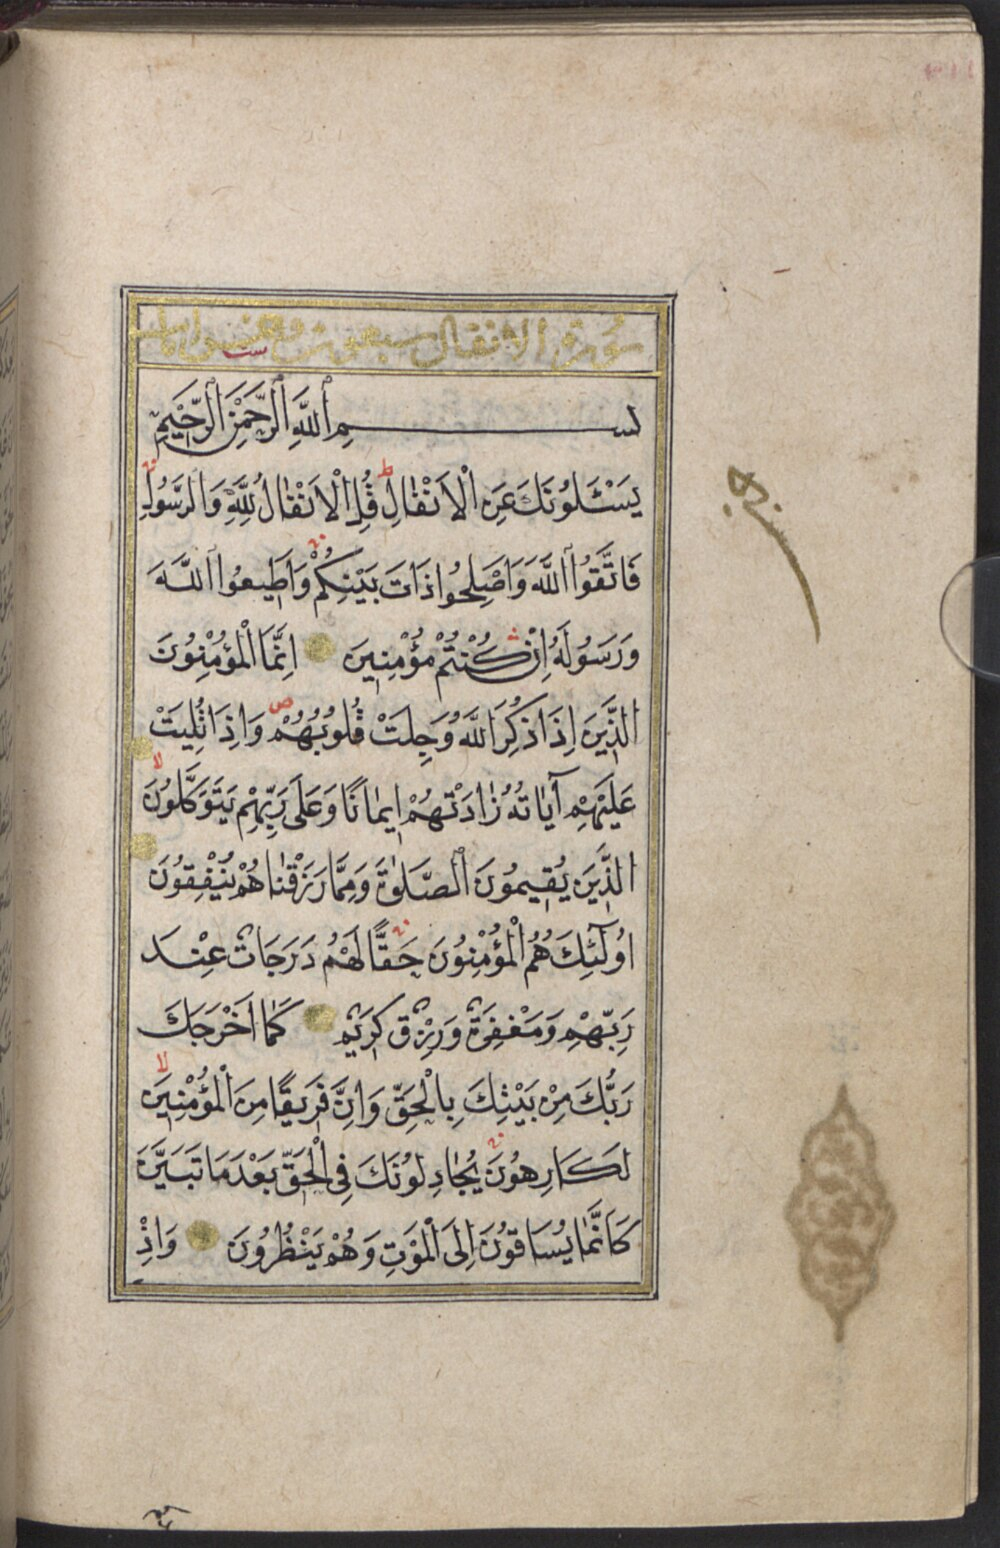 سورة الانفال سبعون
بسم الله الرحمن الرحيم
يَسْئَلُونَكَ عَنِ الْاَنْفَالِ قُلِ الْاَنْفَالُ لِلّٰهِ وَالرَّسُولِ
فَاتَّقُوا اللّٰهَ وَاَصْلِحُوا ذَاتَ بَيْنِكُمْ وَاَطِيعُوا اللّٰهَ
وَرَسُولَهُ اِنْ كُنْتُمْ مُؤْمِنِينَ اِنَّمَا الْمُؤْمِنُونَ
الَّذِينَ اِذَا ذُكِرَ اللّٰهُ وَجِلَتْ قُلُوبُهُمْ وَاِذَا تُلِيَتْ
عَلَيْهِمْ آيَاتُهُ زَادَتْهُمْ اِيمَانًا وَعَلَى رَبِّهِمْ يَتَوَكَّلُونَ
الَّذِينَ يُقِيمُونَ الصَّلٰوةَ وَمِمَّا رَزَقْنَاهُمْ يُنْفِقُونَ
اُولٰئِكَ هُمُ الْمُؤْمِنُونَ حَقًّا لَهُمْ دَرَجَاتٌ عِنْدَ
رَبِّهِمْ وَمَغْفِرَةٌ وَرِزْقٌ كَرِيمٌ كَمَا اَخْرَجَكَ
رَبُّكَ مِنْ بَيْتِكَ بِالْحَقِّ وَاِنَّ فَرِيقًا مِنَ الْمُؤْمِنِينَ
لَكَارِهُونَ يُجَادِلُونَكَ فِى الْحَقِّ بَعْدَ مَا تَبَيَّنَ
كَاَنَّمَا يُسَاقُونَ اِلَى الْمَوْتِ وَهُمْ يَنْظُرُونَ وَاِذْ